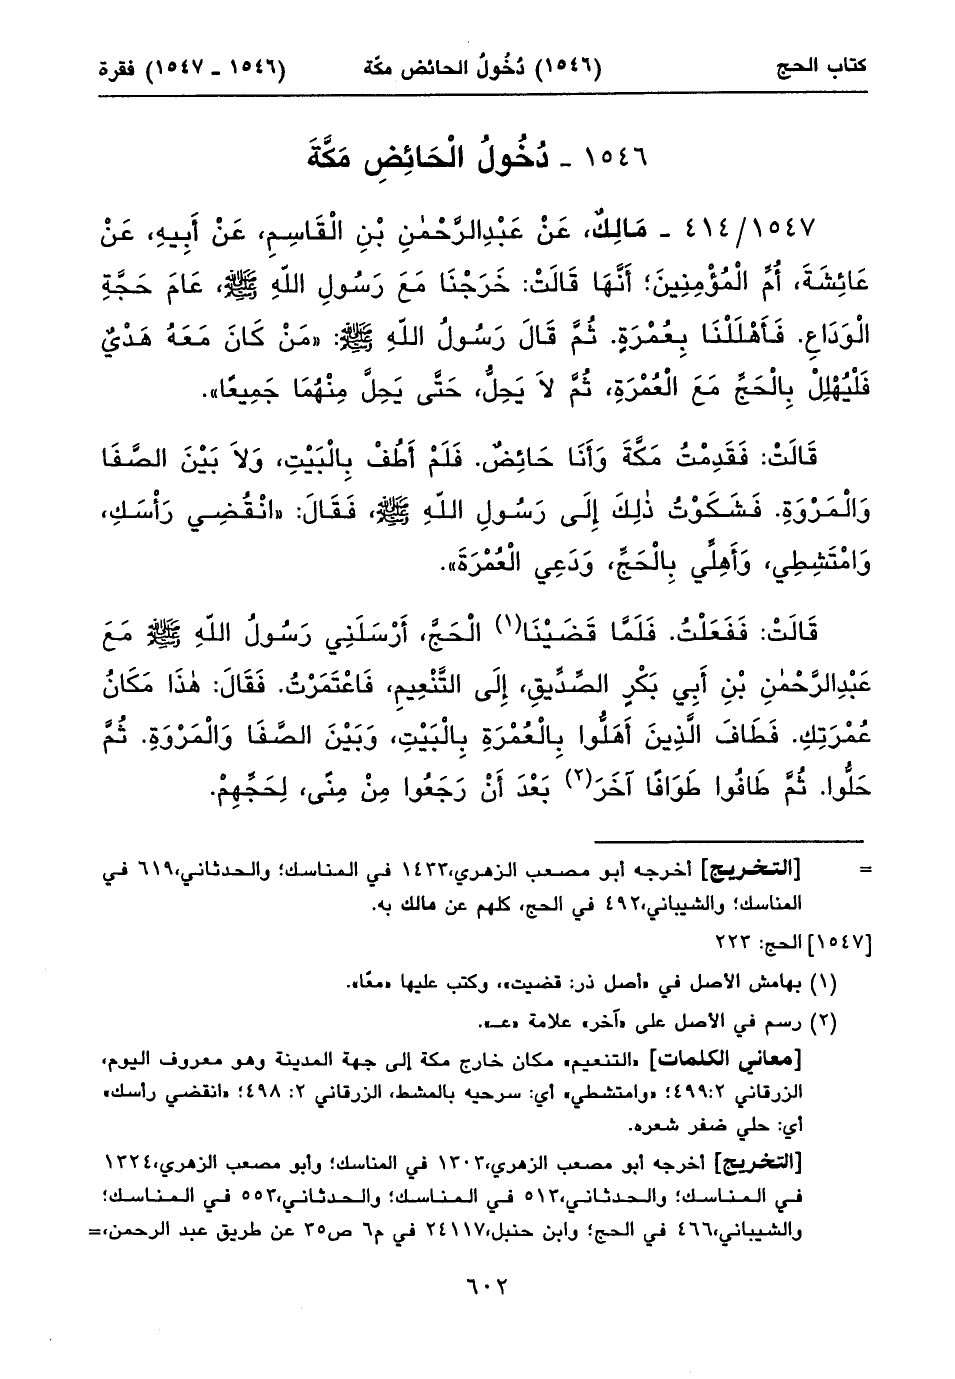 كتاب الحج (١٥٤٦) دُخُولُ الحائض مكّة (١٥٤٦ - ١٥٤٧) فقرة
١٥٤٦ - دُخُولُ الْحَائِضِ مَكَّةَ
٤١٤/١٥٤٧ - مَالِكٌ، عَنْ عَبْدِالرَّحْمٰنِ بْنِ الْقَاسِمِ، عَنْ أَبِيهِ، عَنْ
عَائِشَةَ، أُمِّ الْمُؤْمِنِينَ؛ أَنَّهَا قَالَتْ: خَرَجْنَا مَعَ رَسُولِ اللّهِ ﷺ، عَامَ حَجَّةِ
الْوَدَاعِ. فَأَهْلَلْنَا بِعُمْرَةٍ. ثُمَّ قَالَ رَسُولُ اللّهِ ﷺ: «مَنْ كَانَ مَعَهُ هَدْيٌ
فَلْيُهْلِلْ بِالْحَجِّ مَعَ الْعُمْرَةِ، ثُمَّ لاَ يَحِلُّ، حَتَّى يَحِلَّ مِنْهُمَا جَمِيعًا».
قَالَتْ: فَقَدِمْتُ مَكَّةَ وَأَنَا حَائِضٌ. فَلَمْ أَطُفْ بِالْبَيْتِ، وَلاَ بَيْنَ الصَّفَا
وَالْمَرْوَةِ. فَشَكَوْتُ ذٰلِكَ إِلَى رَسُولِ اللّهِ ﷺ، فَقَالَ: «انْقُضِي رَأْسَكِ،
وَامْتَشِطِي، وَأَهِلِّي بِالْحَجِّ، وَدَعِي الْعُمْرَةَ».
قَالَتْ: فَفَعَلْتُ. فَلَمَّا قَضَيْنَا(١) الْحَجَّ، أَرْسَلَنِي رَسُولُ اللّهِ ﷺ مَعَ
عَبْدِالرَّحْمٰنِ بْنِ أَبِي بَكْرٍ الصِّدِّيقِ، إِلَى التَّنْعِيمِ، فَاعْتَمَرْتُ. فَقَالَ: هٰذَا مَكَانُ
عُمْرَتِكِ. فَطَافَ الَّذِينَ أَهَلُّوا بِالْعُمْرَةِ بِالْبَيْتِ، وَبَيْنَ الصَّفَا وَالْمَرْوَةِ. ثُمَّ
حَلُّوا. ثُمَّ طَافُوا طَوَافًا آخَرَ(٢) بَعْدَ أَنْ رَجَعُوا مِنْ مِنًى، لِحَجِّهِمْ.
= [التخريج] أخرجه أبو مصعب الزهري،١٤٣٣ في المناسك؛ والحدثاني،٦١٩ في
المناسك؛ والشيباني،٤٩٢ في الحج، كلهم عن مالك به.
[١٥٤٧] الحج: ٢٢٣
(١) بهامش الأصل في «أصل ذر: قضيت»، وكتب عليها «معًا».
(٢) رسم في الأصل على «آخر» علامة «عـ».
[معاني الكلمات] «التنعيم» مكان خارج مكة إلى جهة المدينة وهو معروف اليوم،
الزرقاني ٤٩٩:٢؛ «وامتشطي» أي: سرحيه بالمشط، الزرقاني ٢: ٤٩٨؛ «انقضي رأسك»
أي: حلي ضفر شعره.
[التخريج] أخرجه أبو مصعب الزهري،١٣٠٣ في المناسك؛ وأبو مصعب الزهري،١٣٢٤
في المناسك؛ والحدثاني،٥١٣ في المناسك؛ والحدثاني،٥٥٣ في المناسك؛
والشيباني،٤٦٦ في الحج؛ وابن حنبل،٢٤١١٧ في م٦ ص٣٥ عن طريق عبد الرحمن،=
٦٠٢